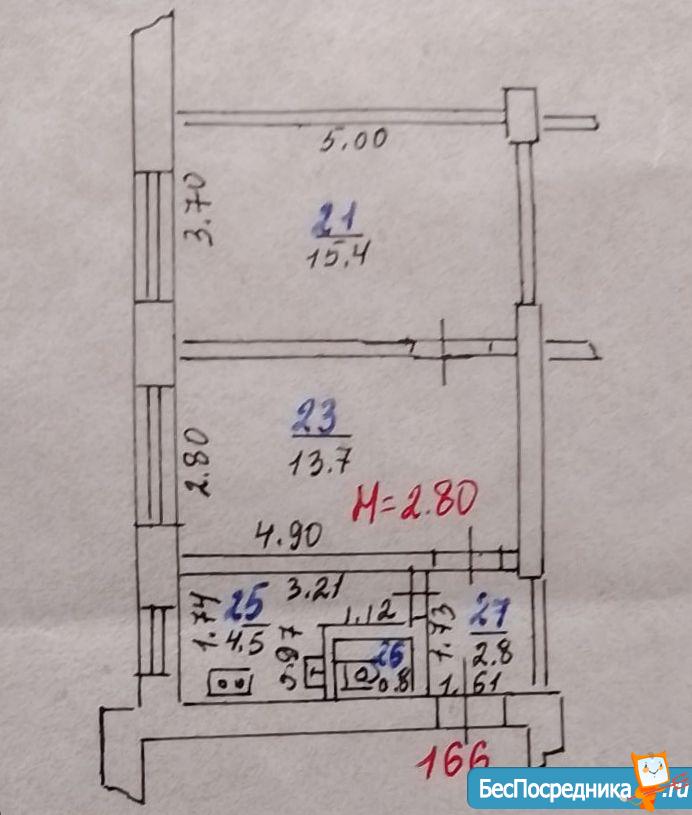 5.00
3.70
21
15.4
23
13.7
2.80
H=2.80
4.90
3.21
1.74
25
4.5
1.12
1.73
27
2.8
26
0.8
1.61
166
БесПосредника.ru